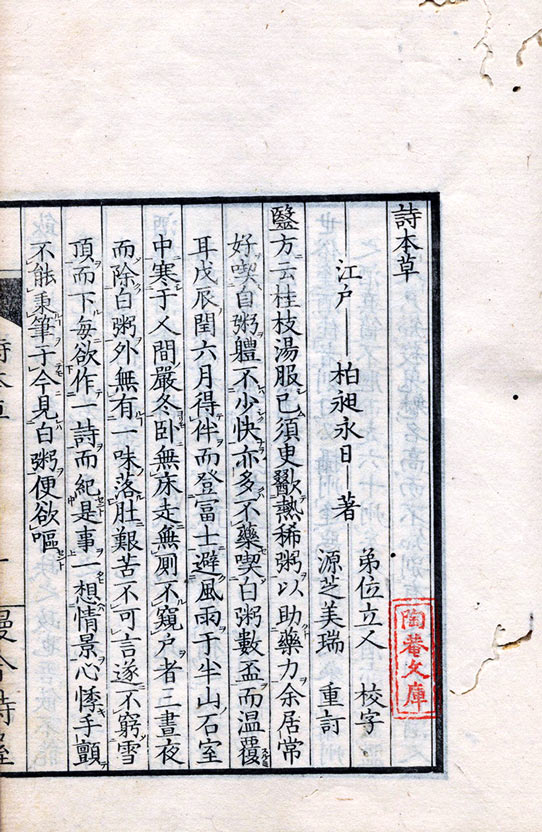 詩本草
陶菴文庫
弟位立人 校字
江戸—柏昶永日—著
源芝美瑞 重訂
醫方云桂枝湯服已須臾歠熱稀粥以助藥力余居常
好喫白粥軆不少快亦多不藥喫白粥數盃而温覆
耳戊辰閏六月得伴而登富士避風雨于半山石室
中寒于人間嚴冬臥無床走無厠不窺戶者三晝夜
而除白粥外無有一味落肚艱苦不可言遂不窮雪
頂而下每欲作一詩而紀是事一想情景心悸手顫
不能秉筆于今見白粥便欲嘔